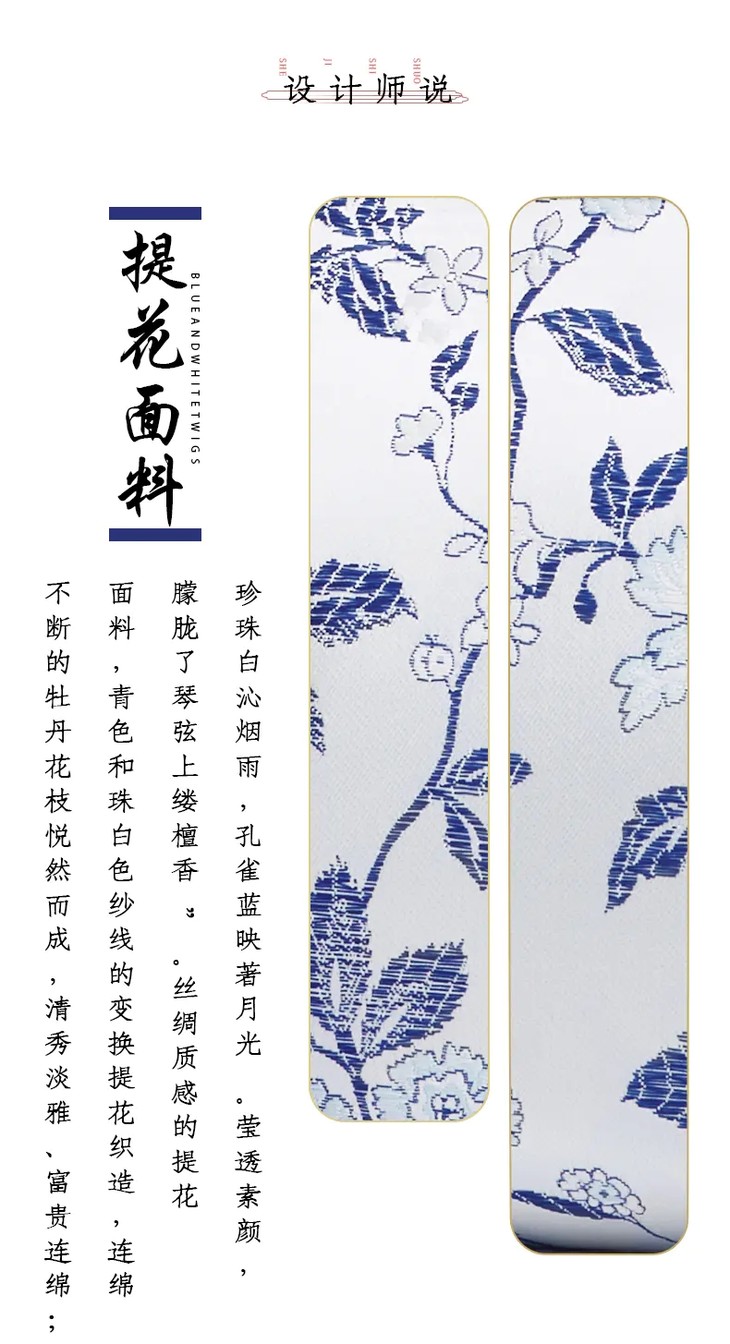 SHE JI SHI SHUO
设计师说
提花面料
BLUEANDWHITETWIGS
珍珠白沁烟雨,孔雀蓝映著月光。莹透素颜,
朦胧了琴弦上缕檀香”。丝绸质感的提花
面料,青色和珠白色纱线的变换提花织造,连绵
不断的牡丹花枝悦然而成,清秀淡雅、富贵连绵;